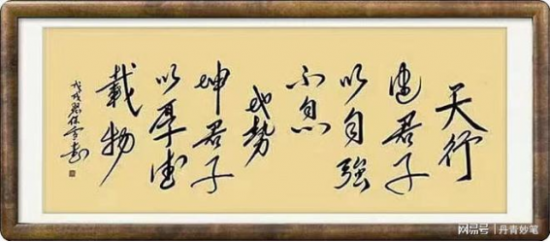 天行
健君子
以自強
不息
地勢
坤君子
以厚德
載物
戊戌
网易号 | 丹青妙笔